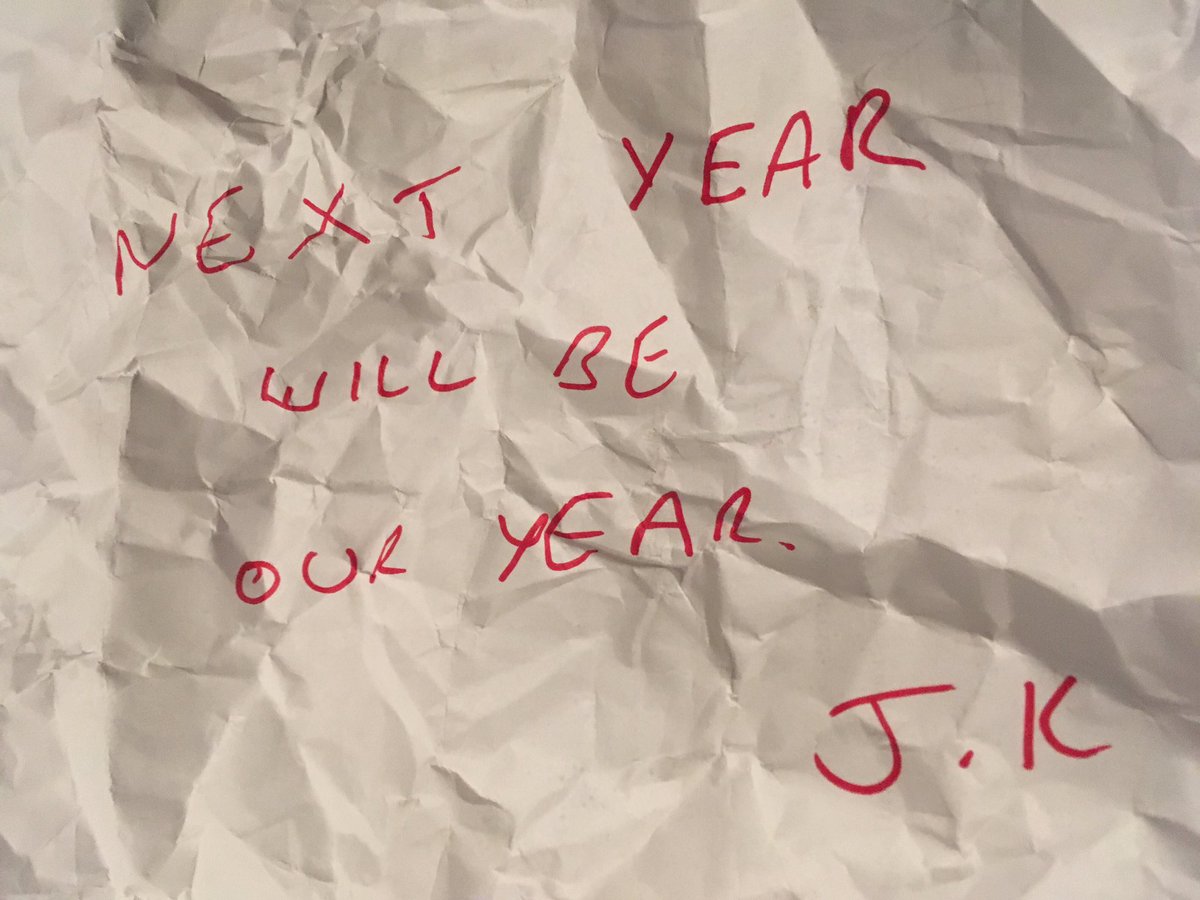 NEXT YEAR
WILL BE
OUR YEAR.
J.K